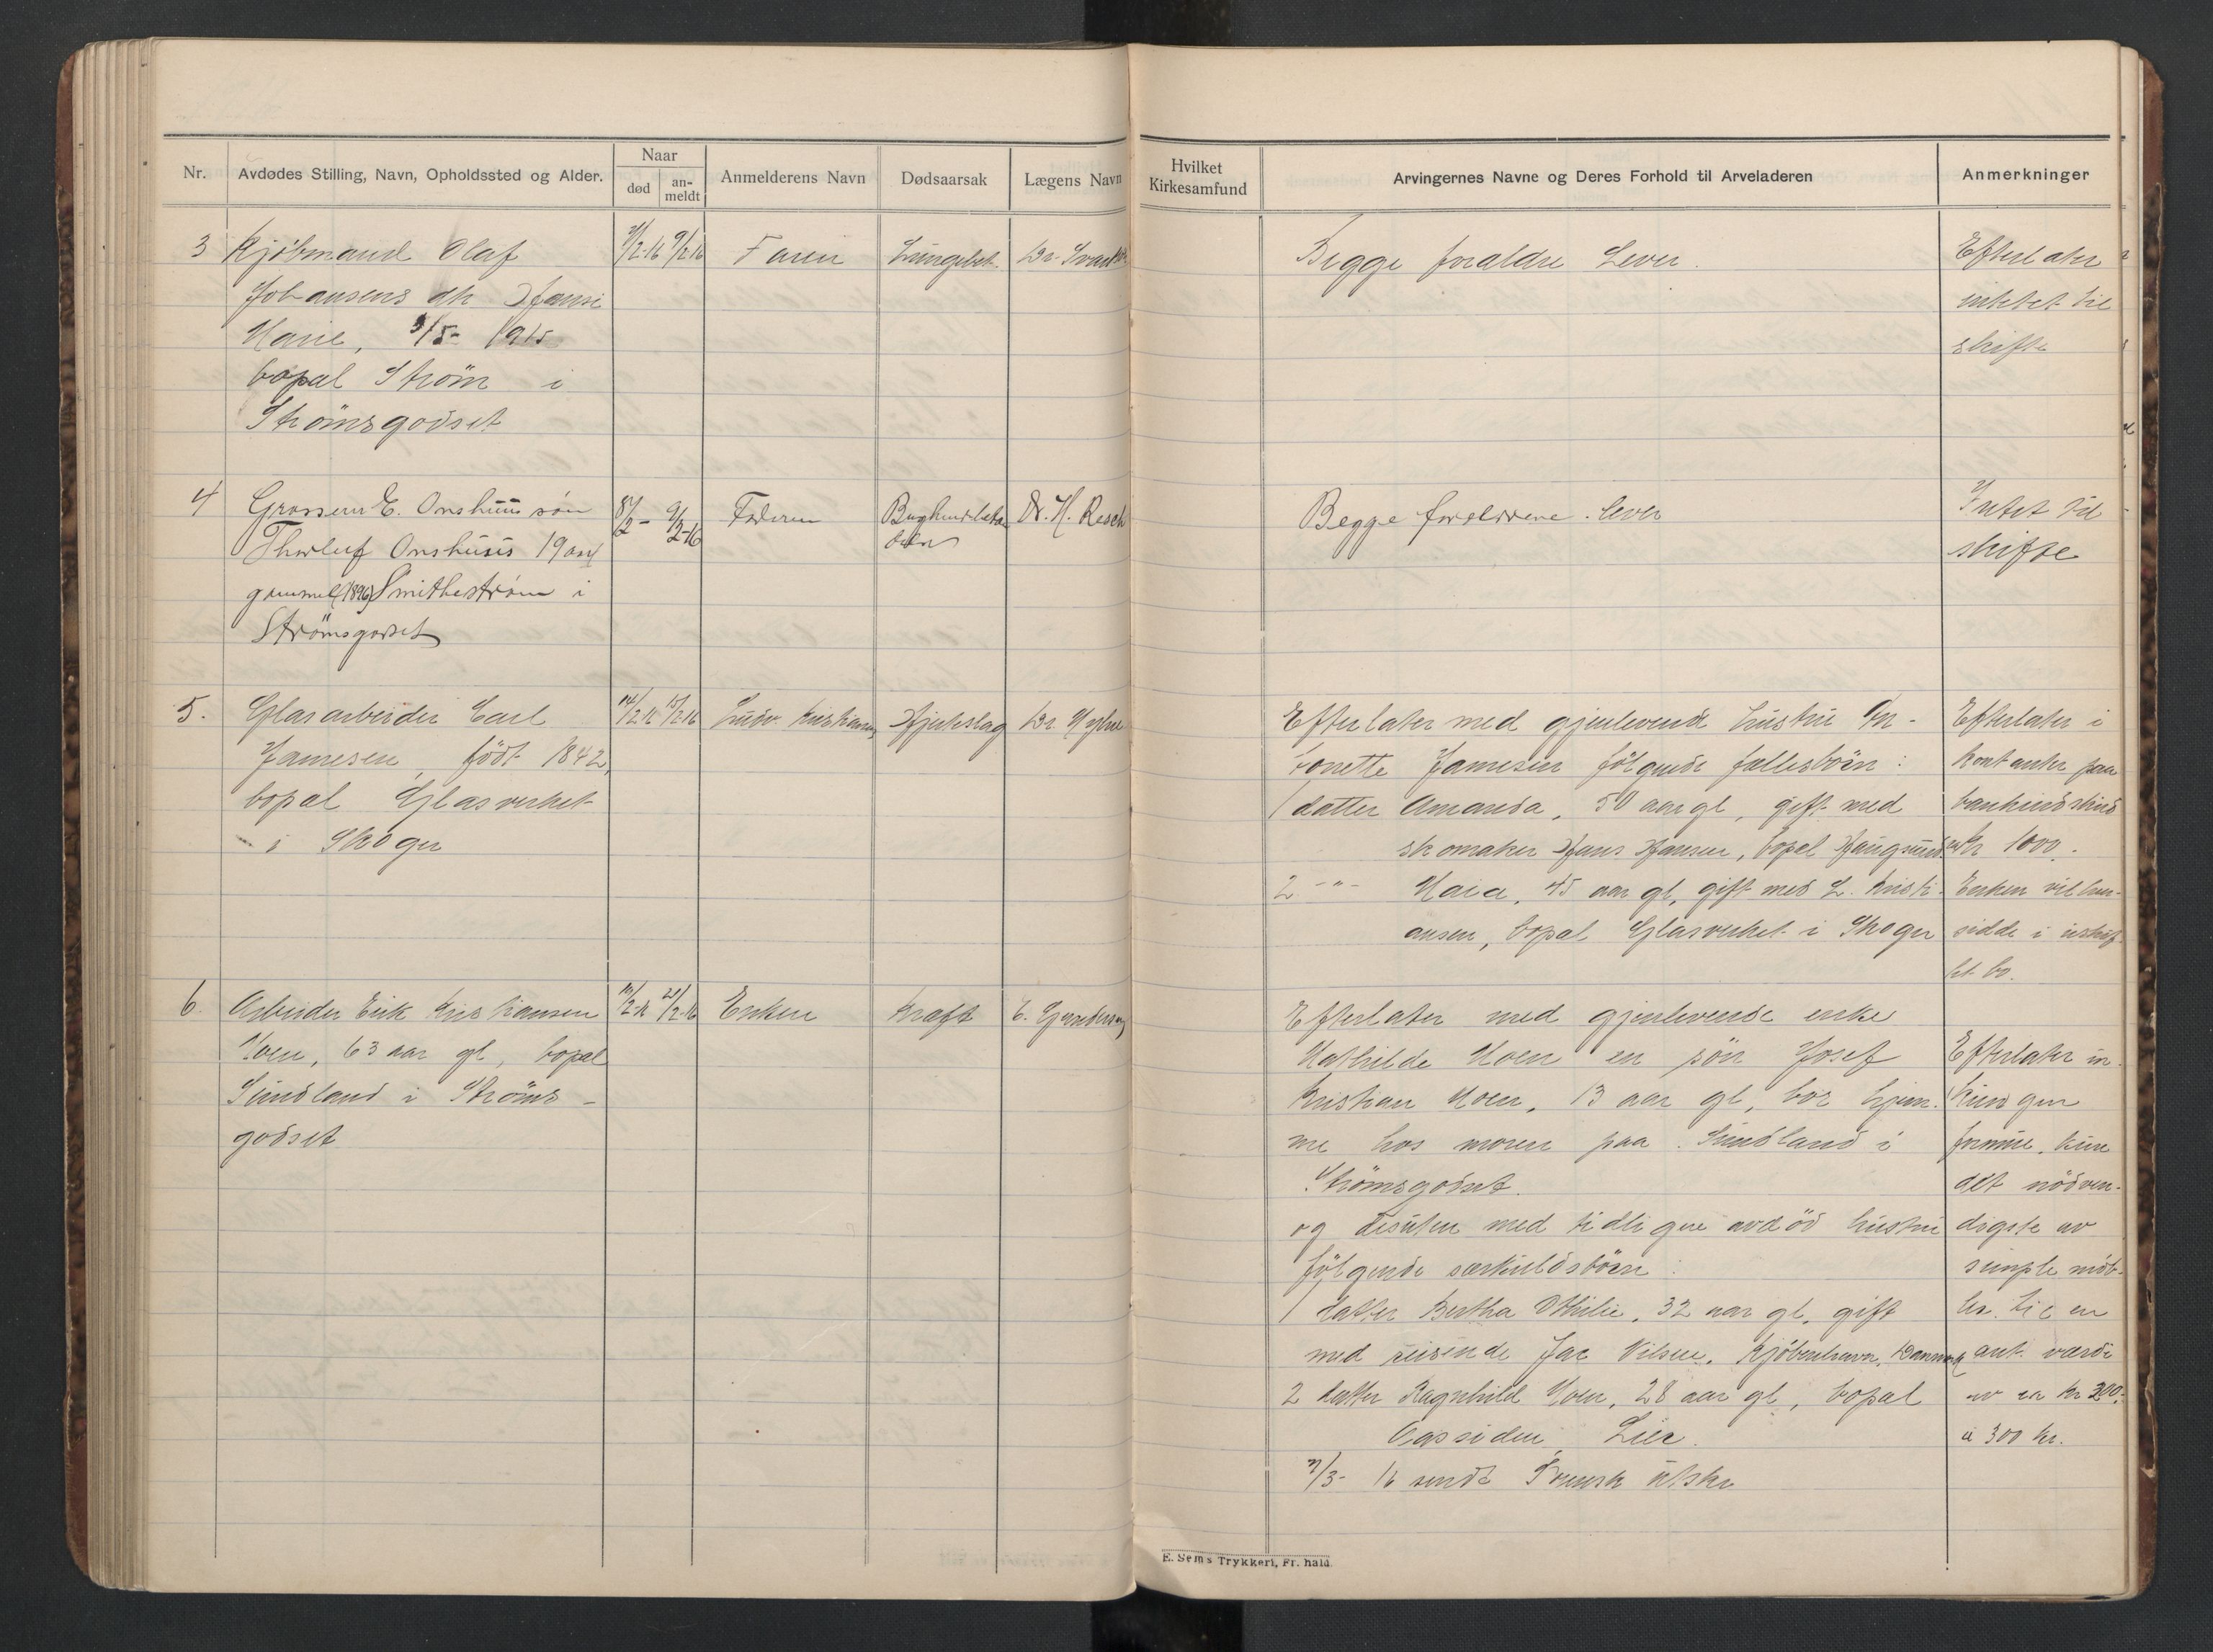 Nr.
Avdødes Stilling, Navn, Opholdssted og Alder.
Naar
død
an-
meldt
Anmelderens Navn
Dødsaarsak
Lægens Navn
Hvilket
Kirkesamfund
Arvingernes Navne og Deres Forhold til Arveladeren
Anmerkninger
3 Kjöbmand Olaf
Johansens dtr Hansi
Marie, 3/5- 1915
bopæl Ström i
Strömsgodset
9/2-16
Faren
Lungebet.
Dr.
Begge foraldre Lever.
Efterlater
intet til
skifte
4 Grosserer E. Onshuus sön
Thorleif Onshuus 19 aar
gammel (1896) Smithestrøm i
Strömsgodset
8/2- 9/2-16
Faderen
Dr. H. Resch
Begge foreldrene lever
Intet til
skifte
5. Glasarbeider Carl
Jamesen, födt 1842,
bopæl Glasverket
i Skoger
14/2-16 15/2-16
Ludv. Kristiansen
Hjerteslag
Dr.
Efterlater med gjenlevende hustru An-
tonette Jamesen fölgende fællesbörn:
1 datter Amanda, 50 aar gl, gift med
skomaker Hans Hansen, bopæl Haugsund
2 -"- Maia, 45 aar gl, gift med L. Kristi-
ansen, bopæl Glasverket i Skoger
Efterlater i
kontanter paa
kr 1000.
Enken vil hen-
sidde i uskif-
tet bo.
6. Arbeider Erik Kristiansen
Moen, 63 aar gl, bopæl
Sundland i Ströms-
godset
21/2-16
Enken
Kræft
E. Gundersen
Efterlater med gjenlevende enke
Mathilde Moen en sön Josef
Kristian Moen, 13 aar gl, bor hjem-
me hos moren paa Sundland i
Strömsgodset.
og desuten med tidligere avdöd hustru
fölgende særkuldsbörn:
1 datter Bertha Othilie, 32 aar gl, gift
med reisende Jac Nilsen, Kjöbenhavn, Danmark
2 datter Ragnhild Moen, 28 aar gl, bopæl
Aassiden, Lier.
Efterlater in-
formue, kun
det nödven-
digste av
simple möb-
ler til en
ant. værdi
av ca kr 200.-
à 300 kr.
/3- 16 sendt Svensk utskr
E. Sem's Trykkeri, Fr. hald.